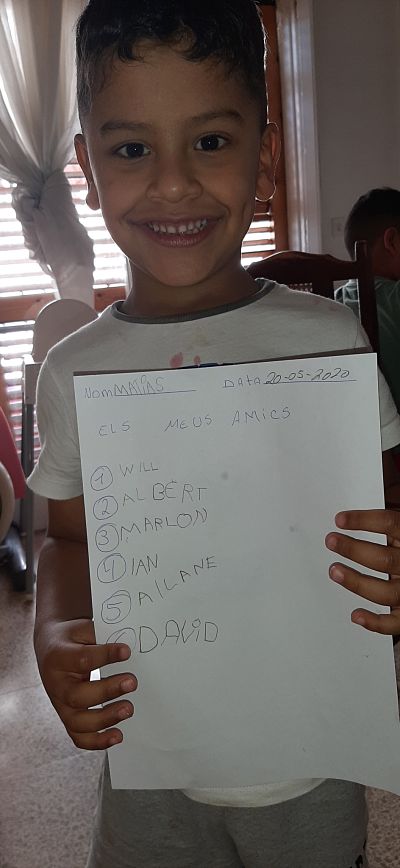 Nom MATIAS DATA 20-05-2020
ELS MEUS AMICS
1 WILL
2 ALBERT
3 MARLON
4 IAN
5 AILANE
6 DAVID